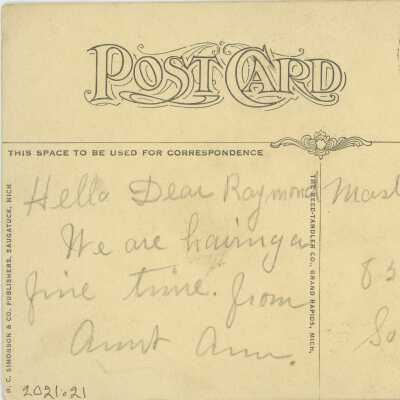 POST CARD
THIS SPACE TO BE USED FOR CORRESPONDENCE
Hello Dear Raymond
We are having a
fine time. from
Aunt Ann.
Mast
83
So
H. C. SIMONSON & CO. PUBLISHERS, SAUGATUCK, MICH
THE REED-TANDLER CO., GRAND RAPIDS, MICH.
2021.21